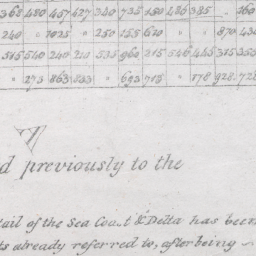 368 480 457 627 340 735 150 486 385 " 160
240 " 1025 " 250 155 610 " " 870 430
515 540 240 210 535 960 215 546 445 315 355
" 273 863 233 " 693 718 " 178 928 728
d previously to the
tail of the Sea Coast & Delta has been
ts already referred to, after being